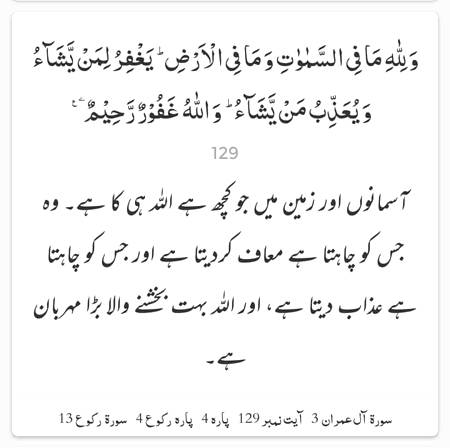 وَلِلّٰهِ مَا فِی السَّمٰوٰتِ وَ مَا فِی الْاَرْضِ ؕ یَغْفِرُ لِمَنْ یَّشَآءُ
وَ یُعَذِّبُ مَنْ یَّشَآءُ ؕ وَ اللّٰهُ غَفُوْرٌ رَّحِیْمٌ
129
آسمانوں اور زمین میں جو کچھ ہے اللہ ہی کا ہے۔ وہ
جس کو چاہتا ہے معاف کردیتا ہے اور جس کو چاہتا
ہے عذاب دیتا ہے، اور اللہ بہت بخشنے والا بڑا مہربان
ہے۔
سورۃ آل عمران 3 آیت نمبر 129 پارہ 4 پارہ رکوع 4 سورۃ رکوع 13